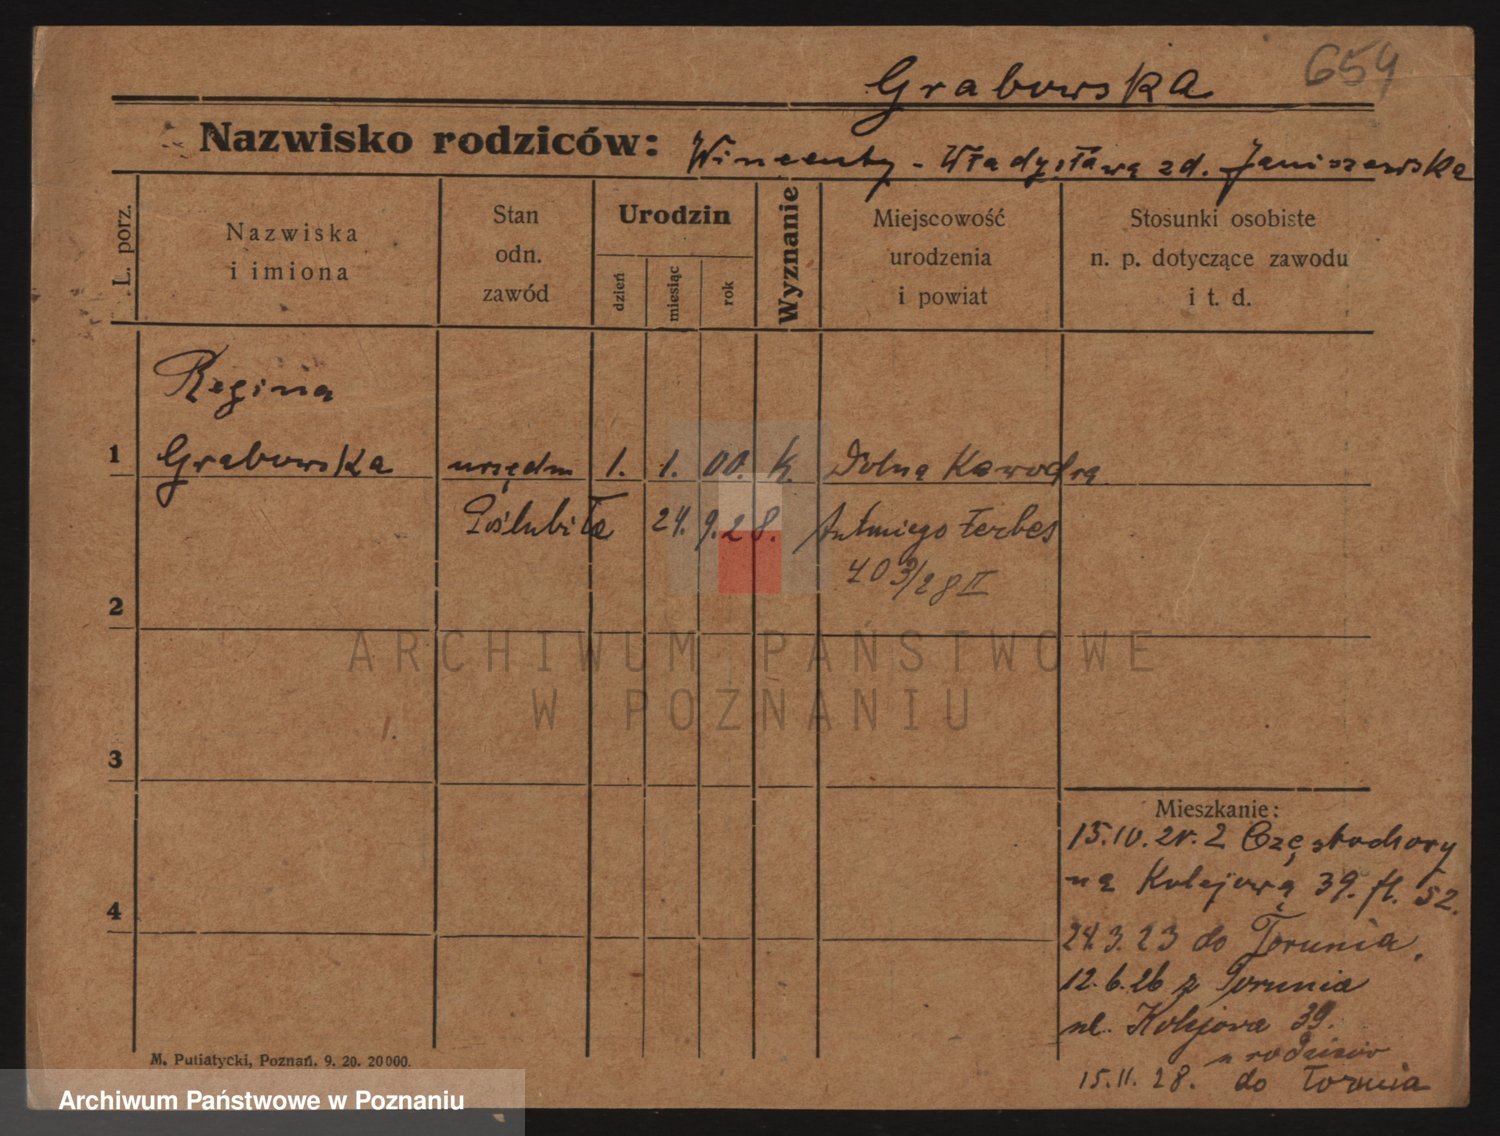 Grabowska 654
Nazwisko rodziców: Wincenty - Władysława zd. Janiszewska
L. porz.
Nazwiska
i imiona
Stan
odn.
zawód
Urodzin
dzień
miesiąc
rok
Wyznanie
Miejscowość
urodzenia
i powiat
Stosunki osobiste
n. p. dotyczące zawodu
i t. d.
Regina
1 Grabowska urzędn 1. 1. 00. k.
Poślubiła 24. 9. 28. Antoniego Ferbes
403/28 II
2
ARCHIWUM PAŃSTWOWE
W POZNANIU
3
Mieszkanie:
15.10.21. z Częstochowy
na Kolejową 39. fl. 52.
4
24.3.23 do Torunia.
12.6.26 z Torunia
ul. Kolejowa 39.
u rodziców
15.11.28. do Torunia
M. Putiatycki, Poznań. 9. 20. 20000.
Archiwum Państwowe w Poznaniu